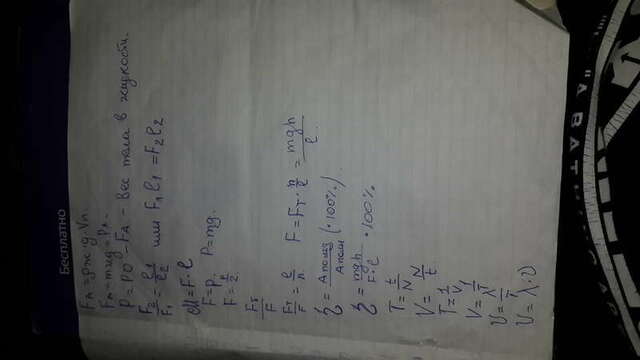 Бесплатно
F_A = ρж·g·Vп
F_A = mжg = Pж.
P = P0 - F_A - вес тела в жидкости.
F2/F1 = l1/l2 или F1l1 = F2l2
M = F·l
F = P. P = mg.
F = P/2
Fт/F
Fт/F = l/h F = Fт·h/l = mgh/l
η = Aполез/Aполн (·100%)
η = mgh/F·l · 100%
T = t/N
V = N/t
T = 1/V
V = 1/T
υ = λ/T
υ = λ·ν